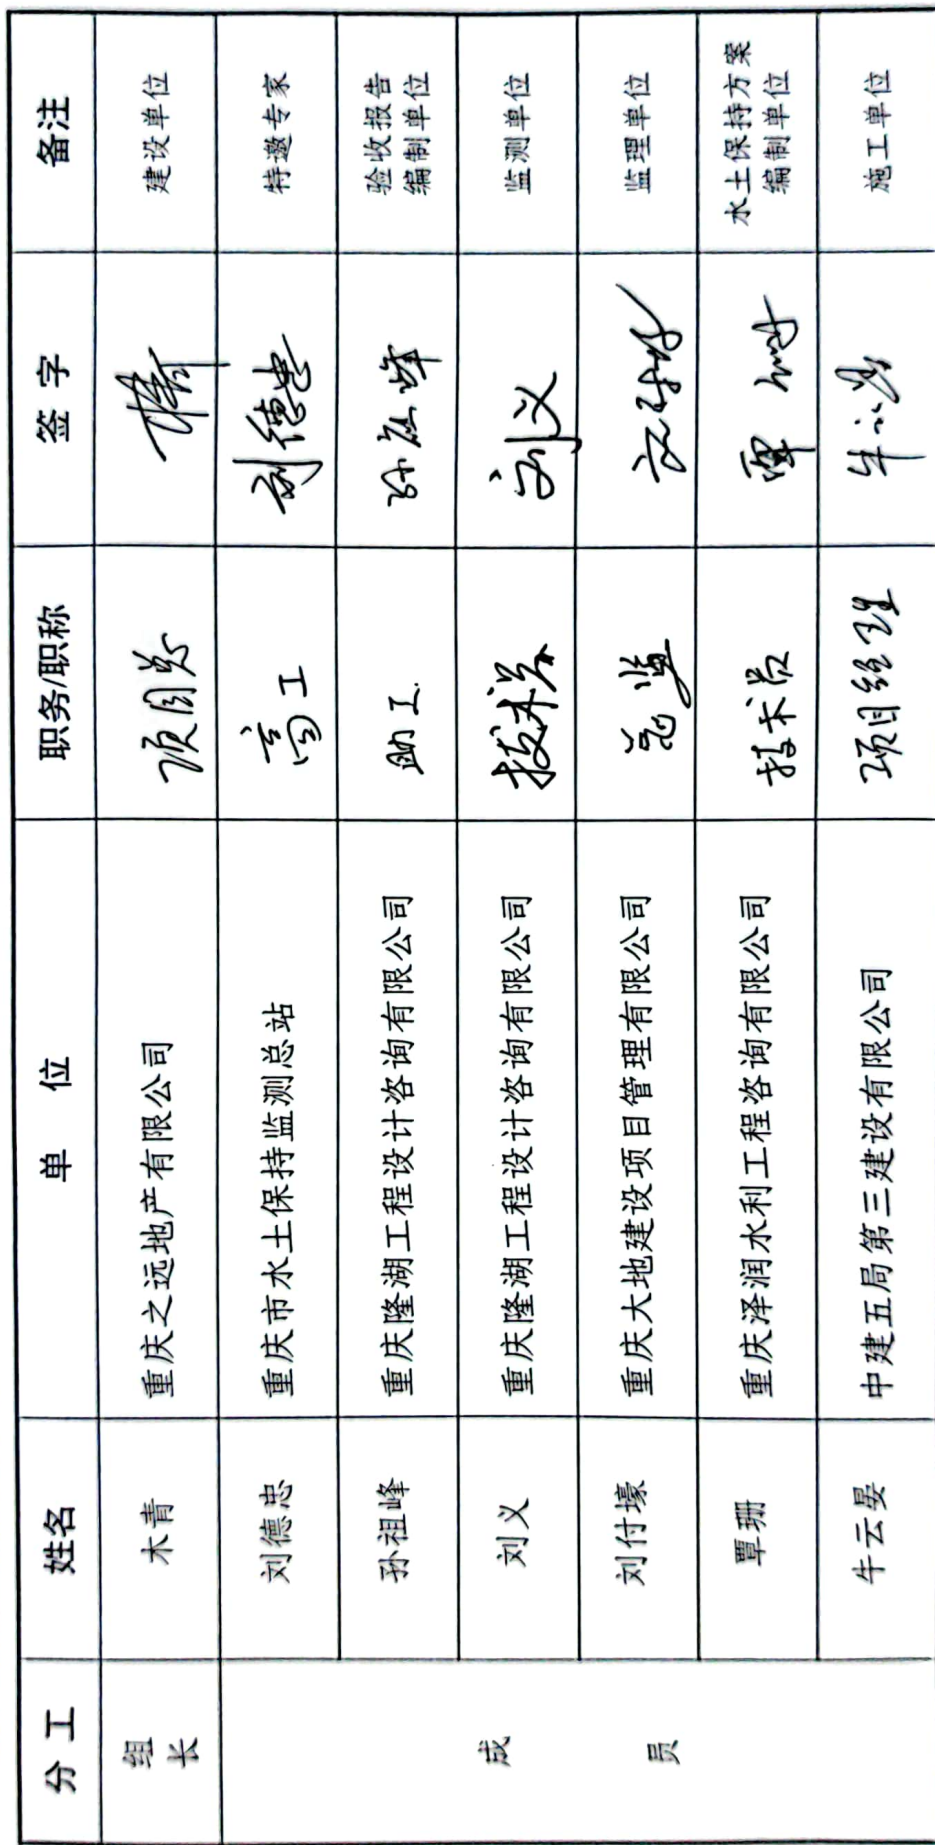 分 工 姓名 单 位 职务/职称 签 字 备注
组长 木青 重庆之远地产有限公司 项目总 建设单位
成 员
刘德忠 重庆市水土保持监测总站 高工 刘德忠 特邀专家
孙祖峰 重庆隆湖工程设计咨询有限公司 助工 孙祖峰 验收报告
编制单位
刘义 重庆隆湖工程设计咨询有限公司 技术员 刘义 监测单位
刘付壕 重庆大地建设项目管理有限公司 总监 监理单位
覃珊 重庆泽润水利工程咨询有限公司 技术员 覃珊 水土保持方案
编制单位
牛云晏 中建五局第三建设有限公司 项目经理 牛云晏 施工单位